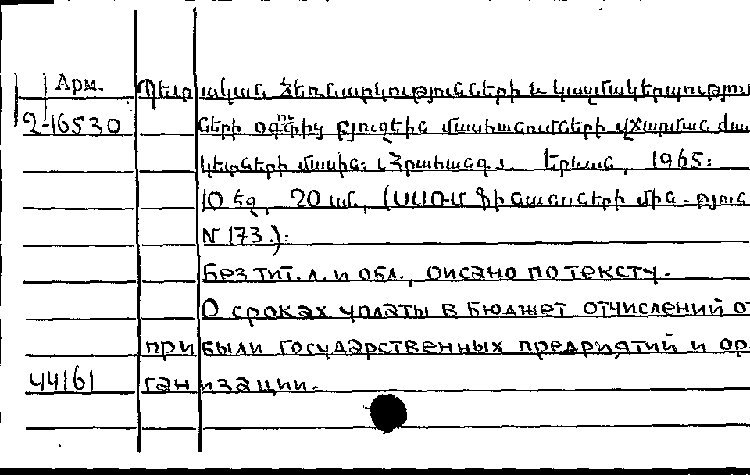 Арм. Պետական ձեռնարկությունների և կազմակերպություն
2-16530 ների օգտից բյուջեին մասհանումների վճարման ժամ
կետների մասին: Հրահանգ. Երևան, 1965:
10 էջ, 20 սմ, (ՍՍՌՄ Ֆինանսների մին-բյուն
N 173.):
Без тит. л. и обл., оисано по тексту.
О сроках уплаты в бюджет отчислений от
прибыли государственных предприятий и ор
44161 ганизации.